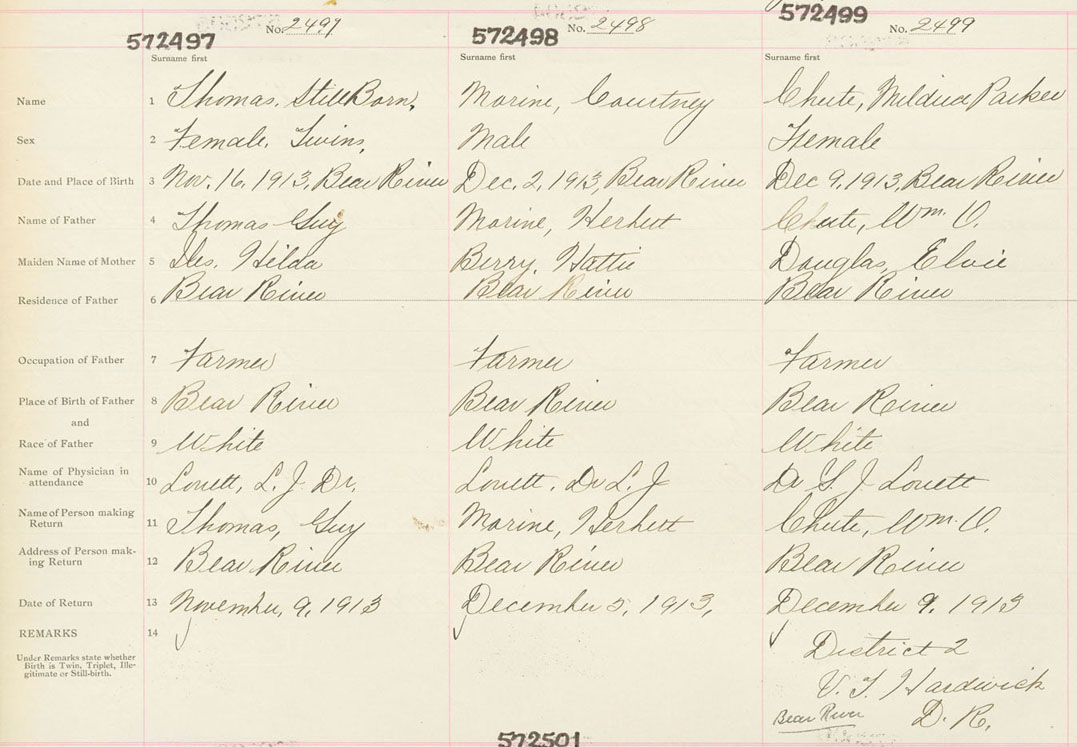 572497 No. 2497 572498 No. 2498 572499 No. 2499
Surname first Surname first Surname first
Name 1 Thomas, StillBorn, Morine, Courtney Chute, Mildred Parker
Sex 2 Female. Twins, Male Female
Date and Place of Birth 3 Nov. 16, 1913, Bear River Dec. 2, 1913, Bear River Dec 9, 1913, Bear River
Name of Father 4 Thomas Guy Morine, Herbert Chute, Wm. O.
Maiden Name of Mother 5 Hilda Berry, Hattie Douglas, Elvie
Residence of Father 6 Bear River Bear River Bear River
Occupation of Father 7 Farmer Farmer Farmer
Place of Birth of Father 8 Bear River Bear River Bear River
and
Race of Father 9 White White White
Name of Physician in
attendance 10 Lovett, L. J. Dr. Lovett. Dr L. J Dr L J Lovett
Name of Person making
Return 11 Thomas, Guy Morine, Herbert Chute, Wm. O.
Address of Person mak-
ing Return 12 Bear River Bear River Bear River
Date of Return 13 November, 9, 1913 December 5, 1913, December 9, 1913
REMARKS 14
Under Remarks state whether
Birth is Twin, Triplet, Ille-
gitimate or Still-birth.
District 2
V. T. Hardwick
Bear River D. R.
572501